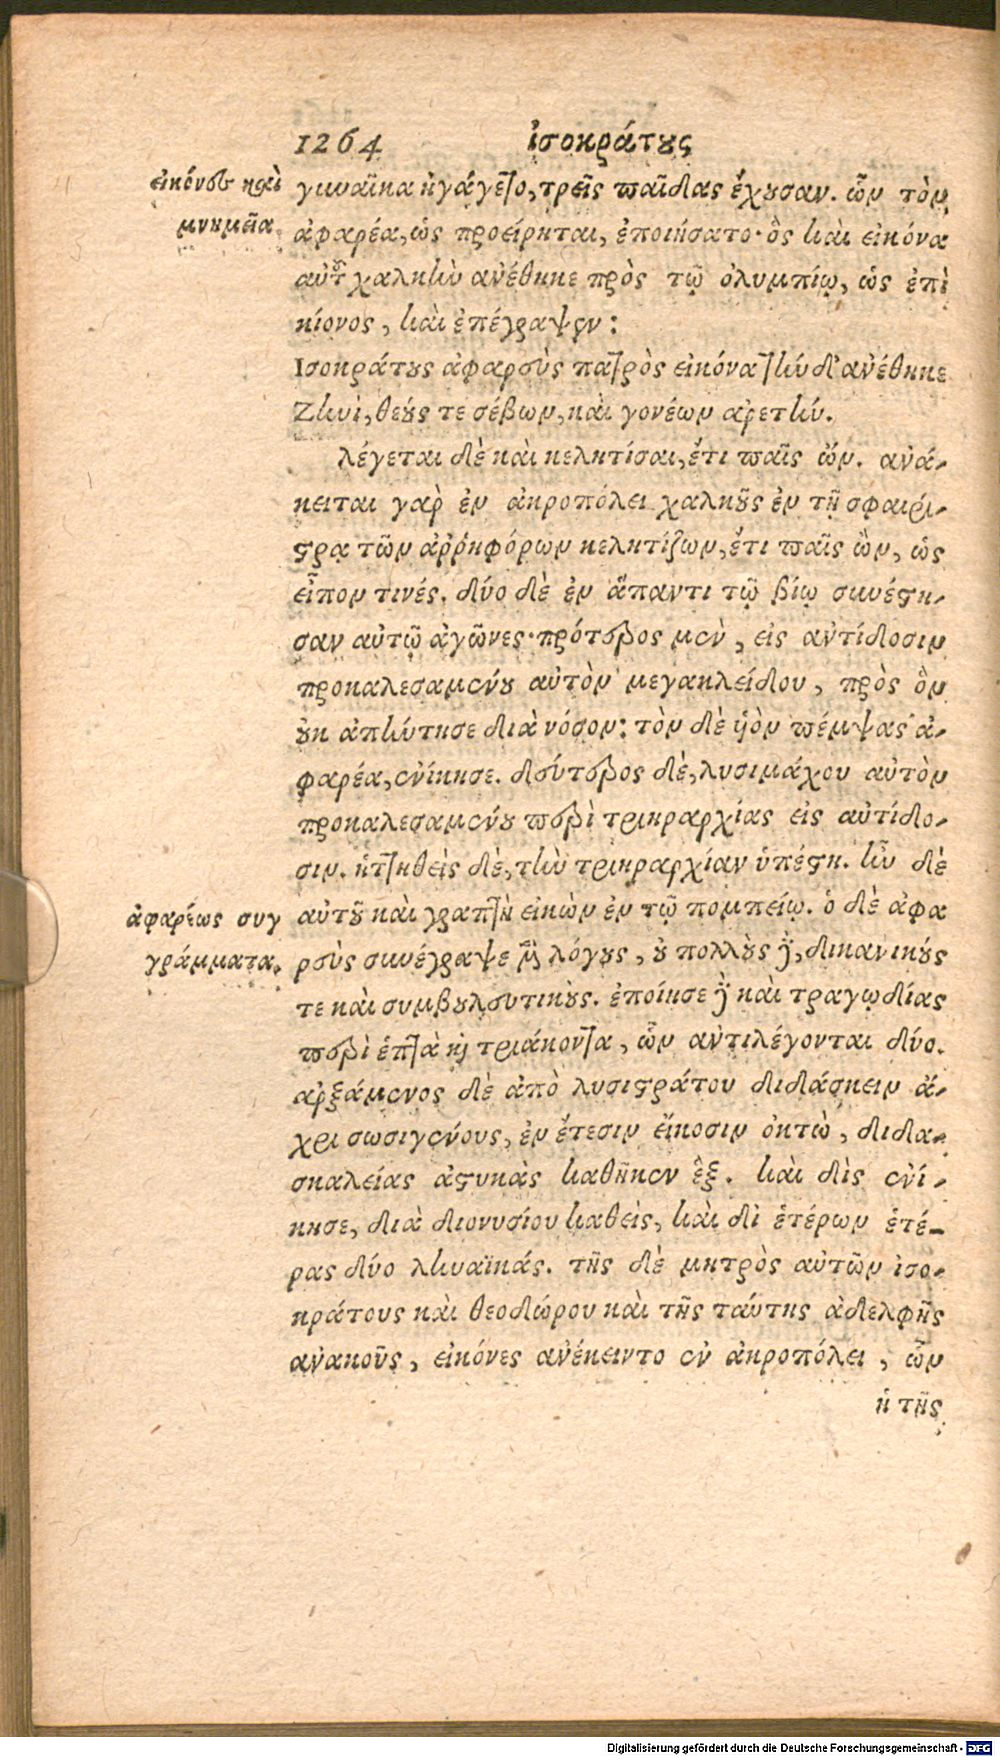 1264 ἰσοκράτους
εἰκόνες καὶ
μνημεῖα.
γυναῖκα ἠγάγετο, τρεῖς παῖδας ἔχουσαν. ὧν τὸν
ἀφαρέα, ὡς προείρηται, ἐποιήσατο· ὃς καὶ εἰκόνα
αὐτοῦ χαλκὴν ἀνέθηκε πρὸς τῷ ὀλυμπίῳ, ὡς ἐπὶ
κίονος, καὶ ἐπέγραψεν:
Ισοκράτους ἀφαρεὺς πατρὸς εἰκόνα τήνδ' ἀνέθηκε
Ζηνὶ, θεούς τε σέβων, καὶ γονέων ἀρετήν.
λέγεται δὲ καὶ κελητίσαι, ἔτι παῖς ὤν. ἀνά-
κειται γὰρ ἐν ἀκροπόλει χαλκοῦς ἐν τῇ σφαιρί-
στρᾳ τῶν ἀῤῥηφόρων κελητίζων, ἔτι παῖς ὢν, ὡς
εἶπον τινές. δύο δὲ ἐν ἅπαντι τῷ βίῳ συνέστη-
σαν αὐτῷ ἀγῶνες· πρότερος μὲν, εἰς ἀντίδοσιν
προκαλεσαμένου αὐτὸν μεγακλείδου, πρὸς ὃν
οὐκ ἀπήντησε διὰ νόσον: τὸν δὲ ὑὸν πέμψας ἀ-
φαρέα, ἐνίκησε. δεύτερος δὲ, λυσιμάχου αὐτὸν
προκαλεσαμένου περὶ τριηραρχίας εἰς ἀντίδο-
σιν. ἡττηθεὶς δὲ, τὴν τριηραρχίαν ὑπέστη. ἦν δὲ
ἀφαρέως συγ
γράμματα.
αὐτοῦ καὶ γραπτὴ εἰκὼν ἐν τῷ πομπείῳ. ὁ δὲ ἀφα
ρεὺς συνέγραψε μὲν λόγους, οὐ πολλοὺς δὲ, δικανικούς
τε καὶ συμβουλευτικούς. ἐποίησε δὲ καὶ τραγῳδίας
περὶ ἑπτὰ καὶ τριάκοντα, ὧν ἀντιλέγονται δύο.
ἀρξάμενος δὲ ἀπὸ λυσιστράτου διδάσκειν ἄ-
χρι σωσιγένους, ἐν ἔτεσιν εἴκοσιν ὀκτὼ, διδα-
σκαλείας ἀστυκὰς καθῆκεν ἓξ. καὶ δὶς ἐνί-
κησε, διὰ διονυσίου καθεὶς, καὶ δι ἑτέρων ἑτέ-
ρας δύο ληναϊκάς. τῆς δὲ μητρὸς αὐτῶν ἰσο-
κράτους καὶ θεοδώρου καὶ τῆς ταύτης ἀδελφῆς
ἀνακοῦς, εἰκόνες ἀνέκειντο ἐν ἀκροπόλει, ὧν
ἡ τῆς
Digitalisierung gefördert durch die Deutsche Forschungsgemeinschaft - DFG